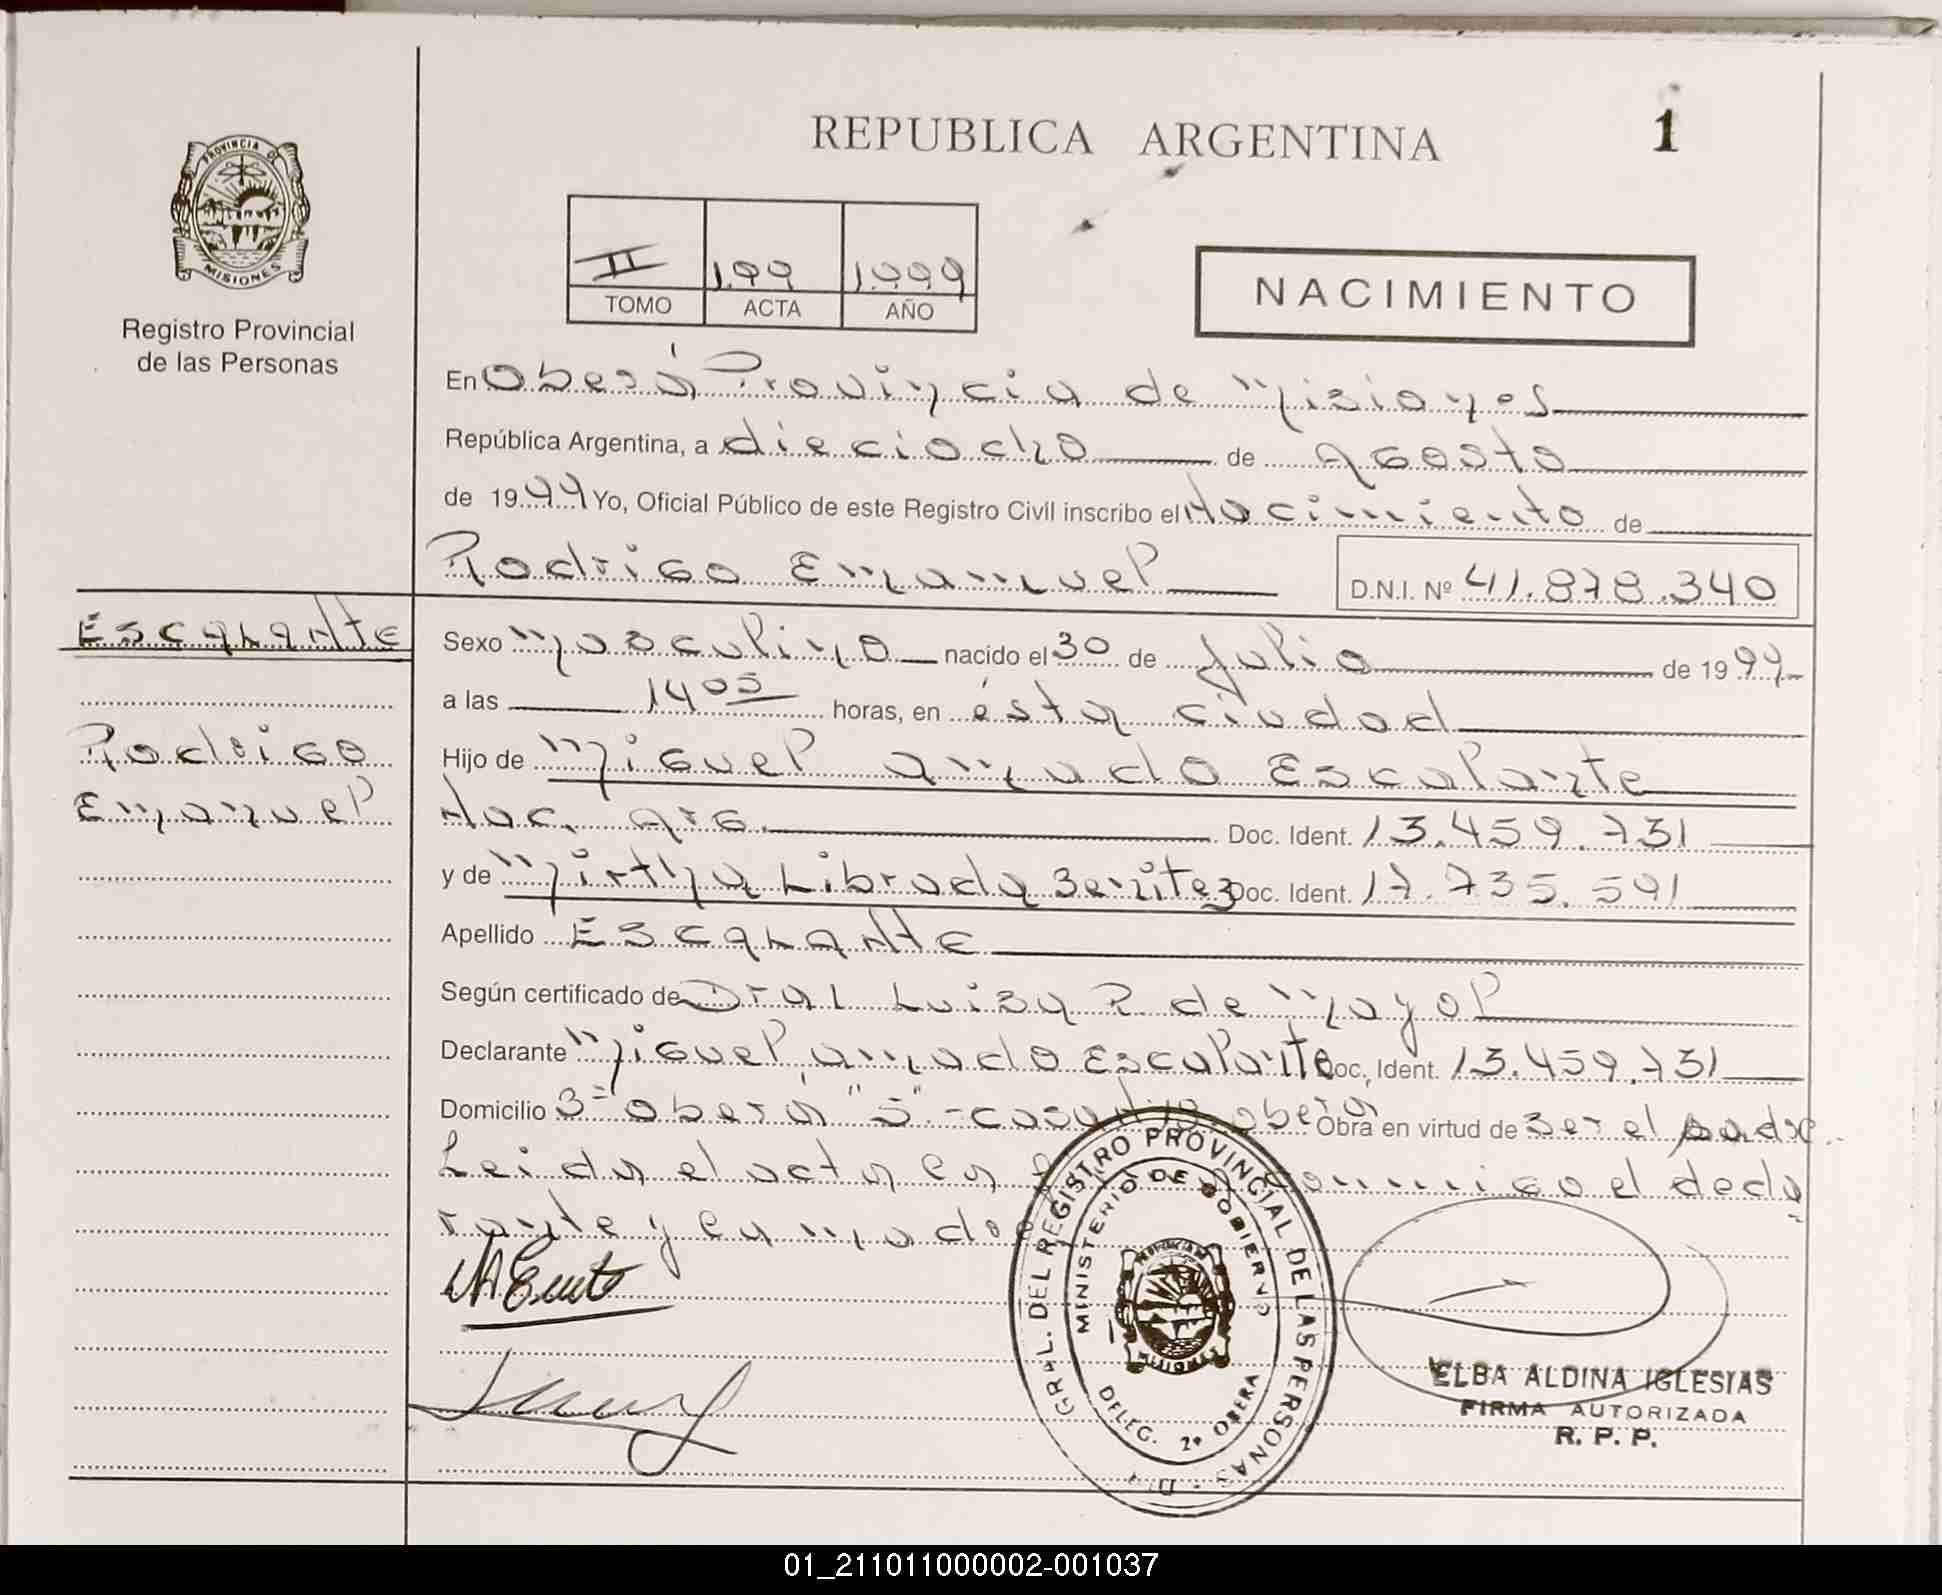 REPUBLICA ARGENTINA
1
PROVINCIA DE
MISIONES
Registro Provincial
de las Personas
II 199 1.999
TOMO ACTA AÑO
NACIMIENTO
En Oberá Provincia de Misiones
República Argentina, a dieciocho de agosto
de 1999 Yo, Oficial Público de este Registro Civíl inscribo el Nacimiento de
Rodrigo Emanuel
D.N.I. Nº 41.878.340
ESCALANTE
Rodrigo
Emanuel
Sexo masculino nacido el 30 de Julio de 1999
a las 14 05 horas, en ésta ciudad
Hijo de Miguel Amado Escalante
Nac. Arg. Doc. Ident. 13.459.731
y de Mirtha Librada Benitez Doc. Ident. 17.735.591
Apellido ESCALANTE
Según certificado de Dra. Luisa R de Mayol
Declarante Miguel Amado Escalante Doc, Ident. 13.459.731
Domicilio Oberá Obra en virtud de ser el padre.
Leida el acta la conmigo el decla
rante y
GRAL. DEL REGISTRO PROVINCIAL DE LAS PERSONAS
MINISTERIO DE GOBIERNO
MISIONES
DELEG. 2º OBERA
ELBA ALDINA IGLESIAS
FIRMA AUTORIZADA
R. P. P.
01_211011000002-001037